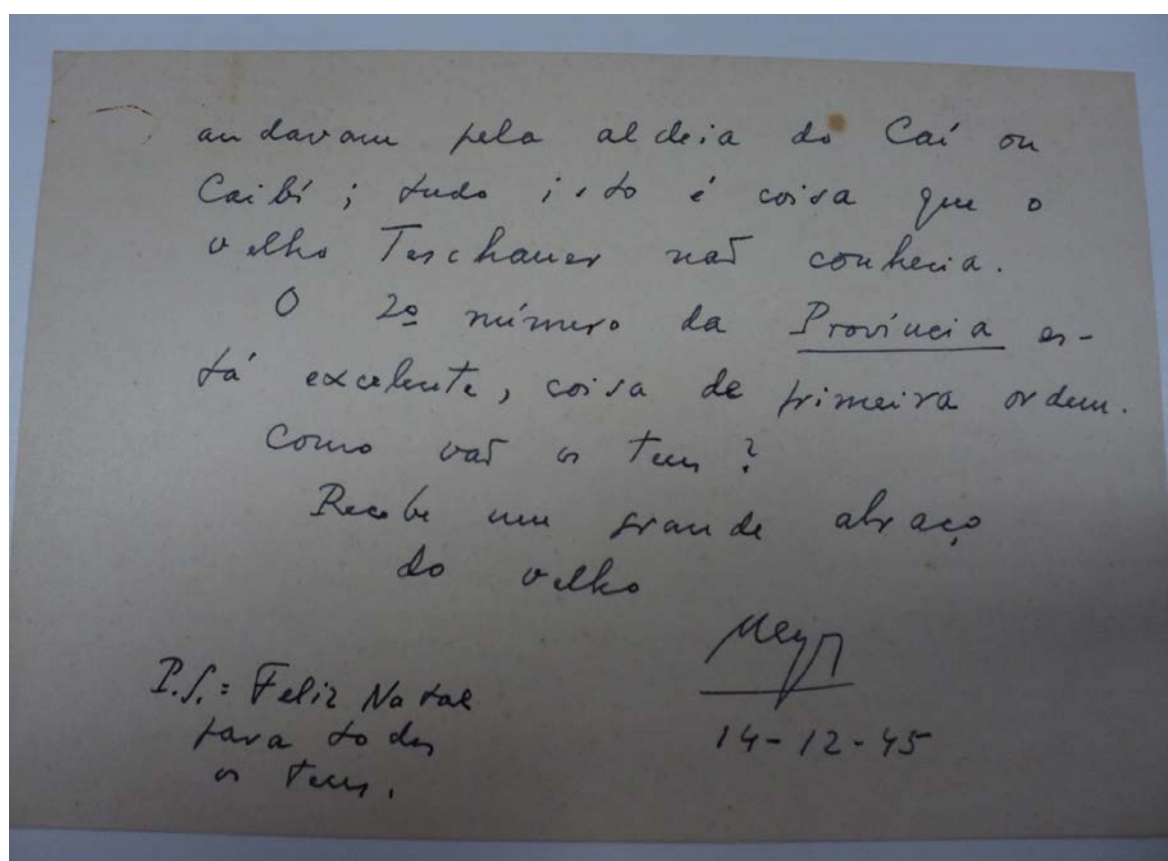 andavam pela aldeia do Caí ou
Caibí; tudo isto é coisa que o
velho Teschauer não conhecia.
O 2º número da Província es-
tá excelente, coisa de primeira ordem.
Como vão os teus?
Recebe um grande abraço
do velho
Meyer
14-12-45
P.S.: Feliz Natal
para todos
os teus.